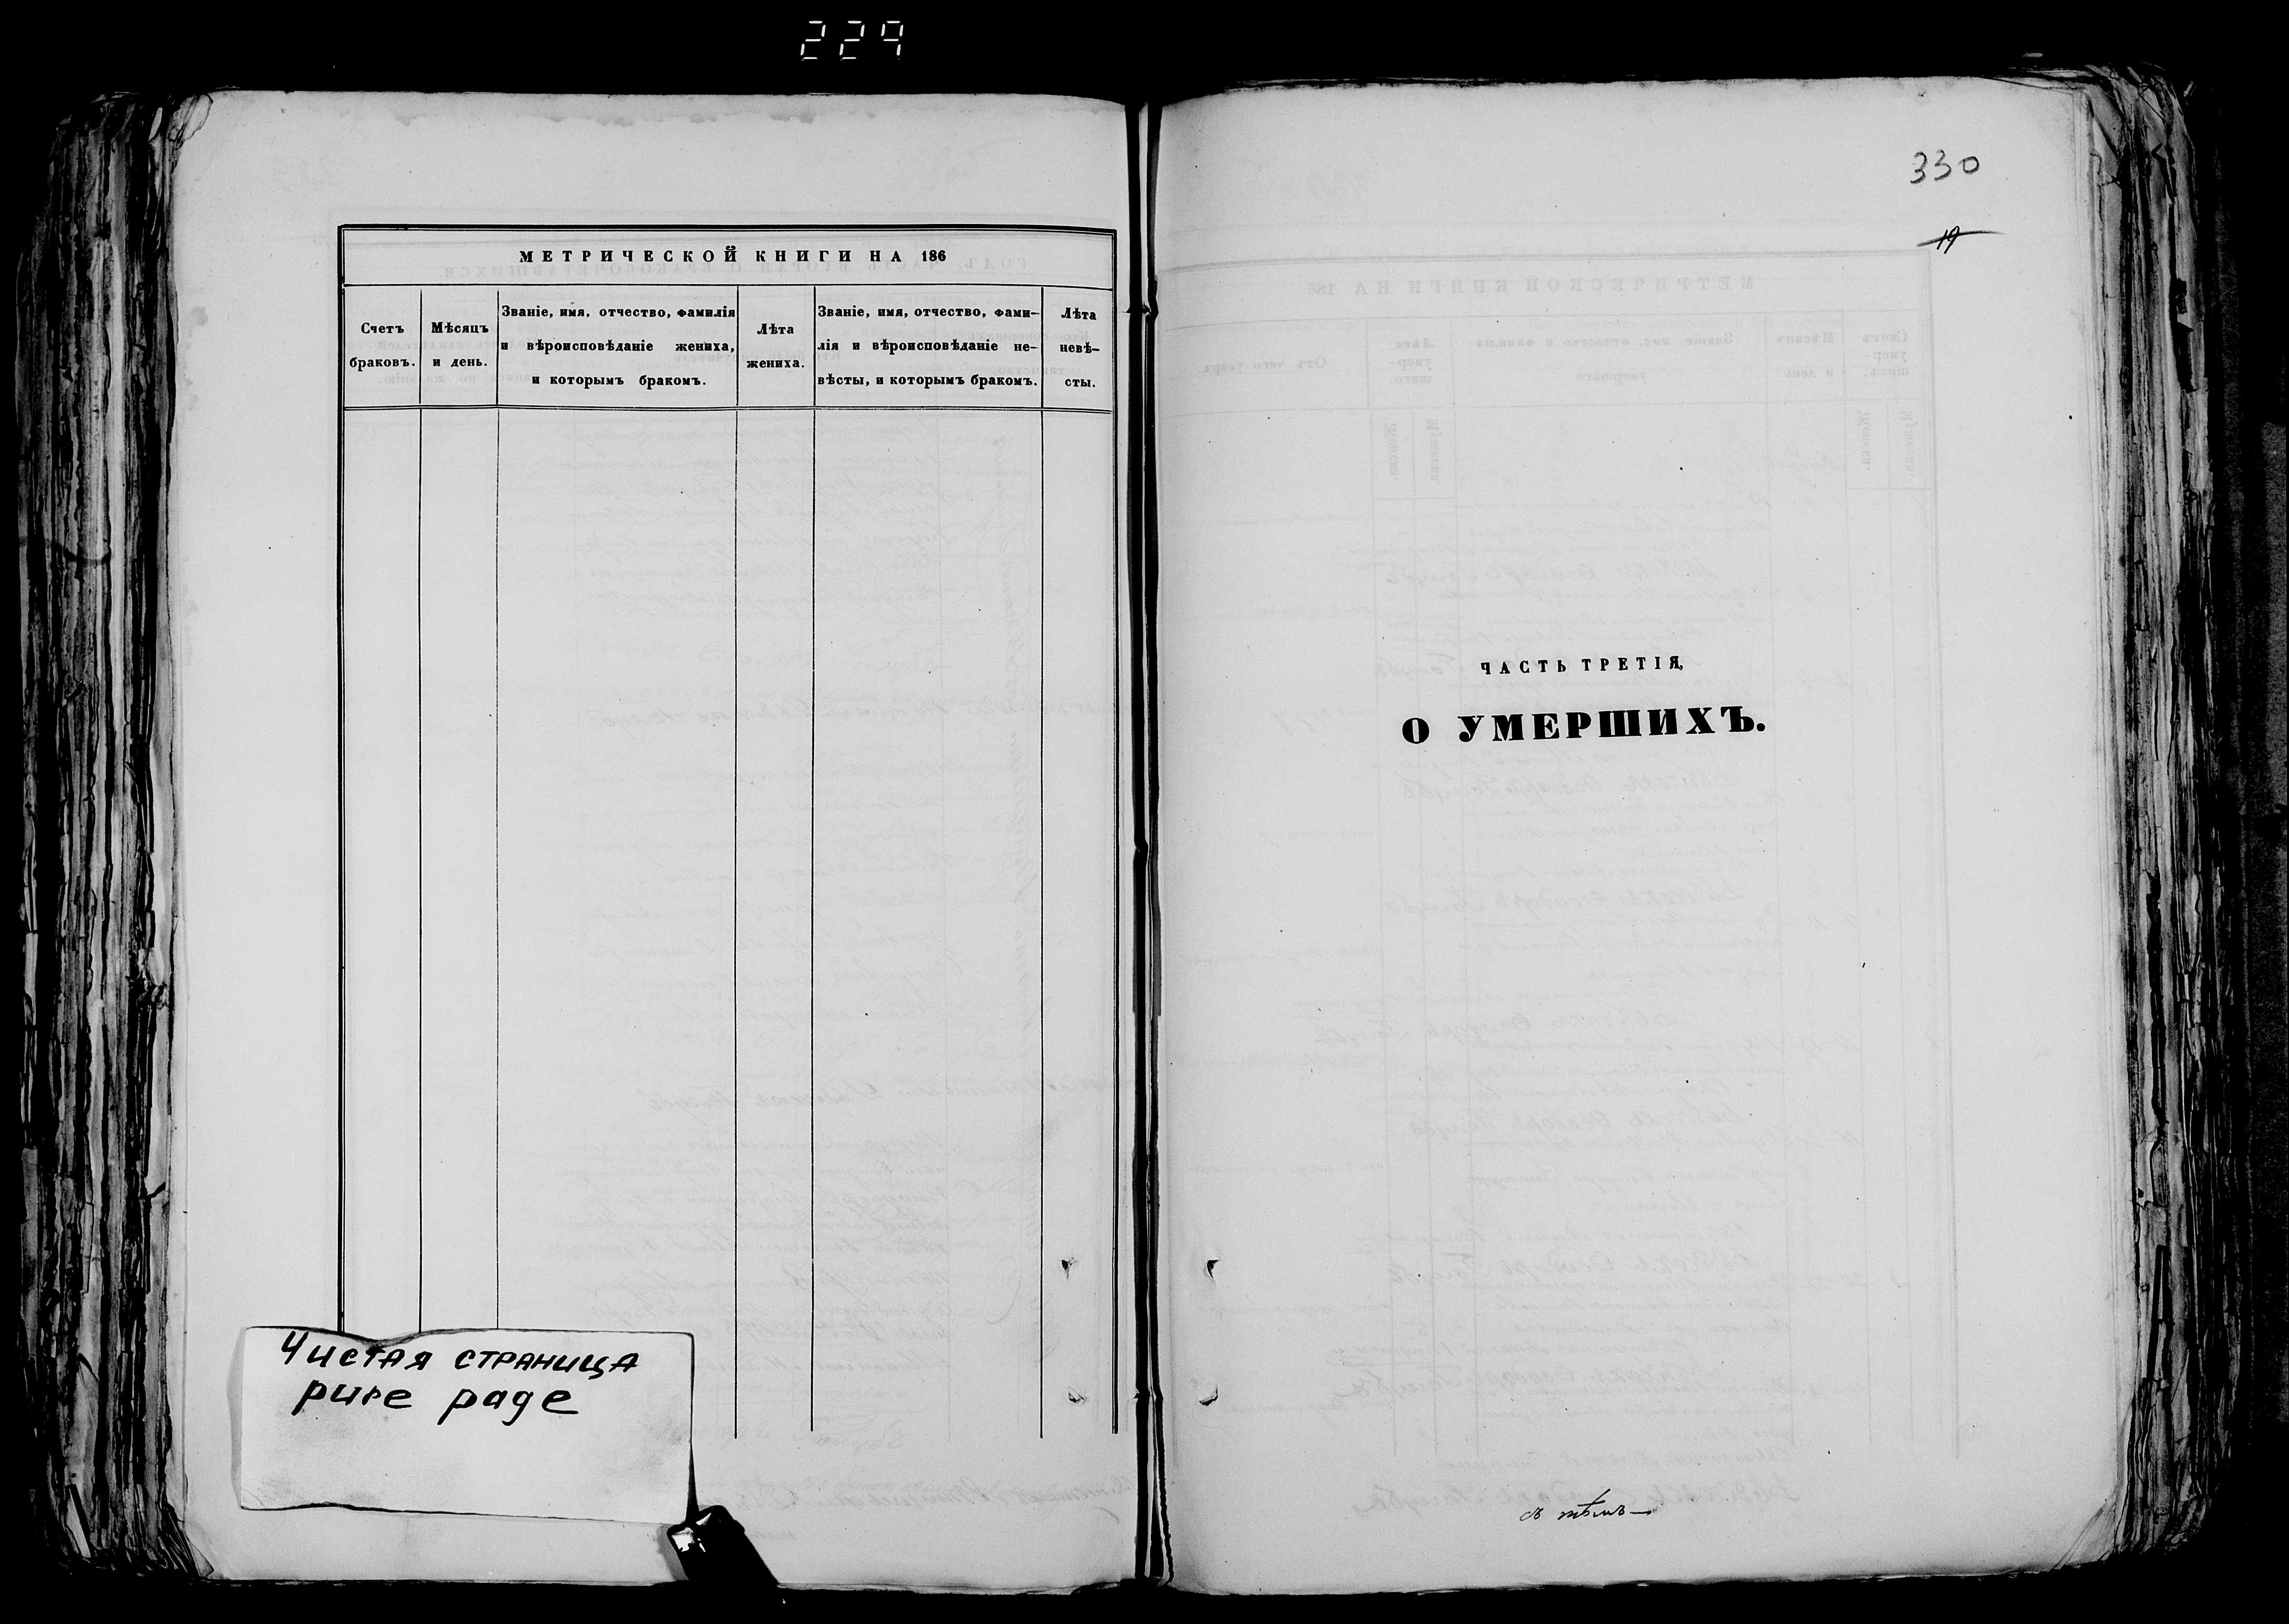 229
МЕТРИЧЕСКОЙ КНИГИ НА 186
Счетъ
браковъ.
Мѣсяцъ
и день.
Званіе, имя, отчество, фамилія
и вѣроисповѣданіе жениха,
и которымъ бракомъ.
Лѣта
жениха.
Званіе, имя, отчество, фами-
лія и вѣроисповѣданіе не-
вѣсты, и которымъ бракомъ.
Лѣта
невѣ-
сты.
Чистая страница
pure page
330
19
ЧАСТЬ ТРЕТІЯ,
О УМЕРШИХЪ.